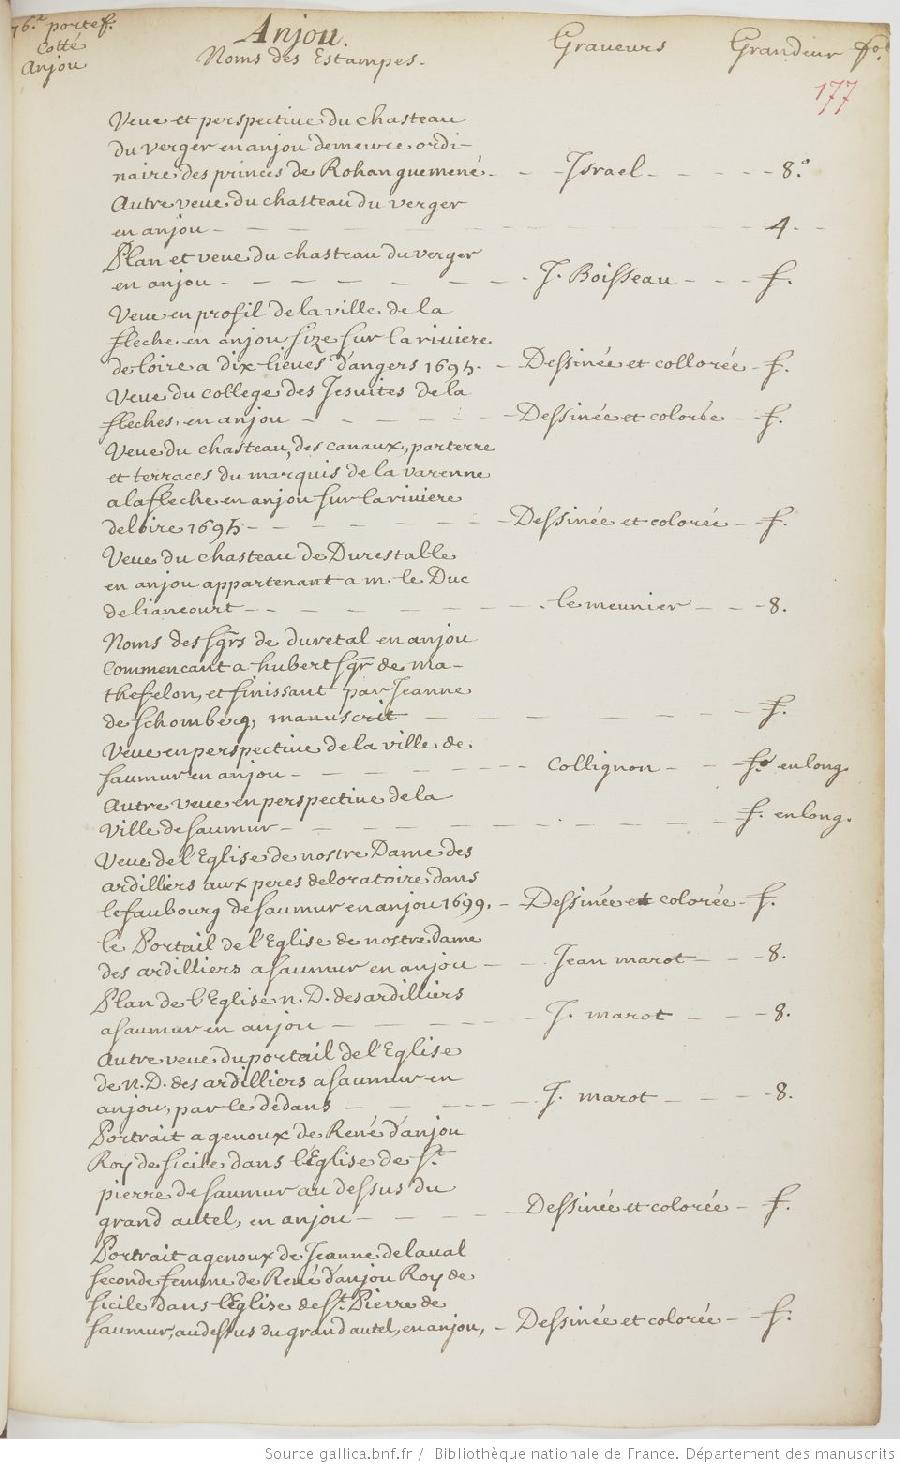 76.e portef.
Cotté
Anjou
Anjou.
Noms des Estampes. Graveurs Grandeur fol
177
Veue et perspective du chasteau
du verger en anjou demeure ordi-
naire des princes de Rohan guemené - - Israel - - - - 8.o
Autre veue du chasteau du verger
en anjou - - - 4. -
Plan et veue du chasteau du verger
en anjou - - - J. Boisseau - - - f.
Veue en profil de la ville de la
fleche en anjou size sur la riviere
de loire a dix lieues d'angers 1695. - Dessinée et collorée - f.
Veue du college des Jesuites de la
fleches en anjou - - - Dessinée et colorée - f.
Veue du chasteau, des canaux, parterre
et terraces du marquis de la varenne
a la fleche en anjou sur la riviere
de loire 1695 - - - Dessinée et colorée - f.
Veue du chasteau de Durestalle
en anjou appartenant a m. le Duc
de liancourt - - - le meunier - - - 8.
Noms des sgrs de duretal en anjou
commencant a hubert sgr de ma-
thefelon, et finissant par Jeanne
de schomberg, manuscrit - - - f.
Veue en perspective de la ville de
saumur en anjou - - - Collignon - - fo en long
Autre veue en perspective de la
ville de saumur - - - f. en long.
Veue de l'Eglise de nostre Dame des
ardilliers aux peres de loratoire dans
le faubourg de saumur en anjou 1699. - Dessinée et colorée - f.
le Portail de l'Eglise de nostre dame
des ardilliers a saumur en anjou - - Jean marot - - - 8.
Plan de l'Eglise n. D. des ardilliers
a saumur en anjou - - - J. marot - - - 8.
Autre veue du portail de l'Eglise
de n. D. des ardilliers a saumur en
anjou, par le dedans - - - J. marot - - - 8.
Portrait a genoux de René d'anjou
Roy de sicile dans l'Eglise de St.
pierre de saumur au dessus du
grand autel, en anjou - - - Dessinée et colorée - f.
Portrait a genoux de Jeanne de laval
seconde femme de René d'anjou Roy de
sicile dans l'Eglise de St. Pierre de
saumur, au dessus du grand autel, en anjou, - Dessinée et colorée - - f.
Source gallica.bnf.fr / Bibliothèque nationale de France. Département des manuscrits